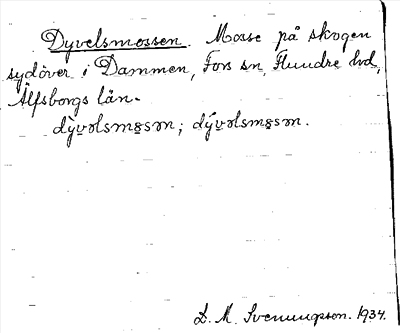 Dyvelsmossen. Mosse på skogen
sydöver i Dammen, Fors sn, Flundre hd,
Älfsborgs län.
dỳvəlsmo̥sən; dývəlsmo̥sən.
D. M. Svenungsson. 1934.